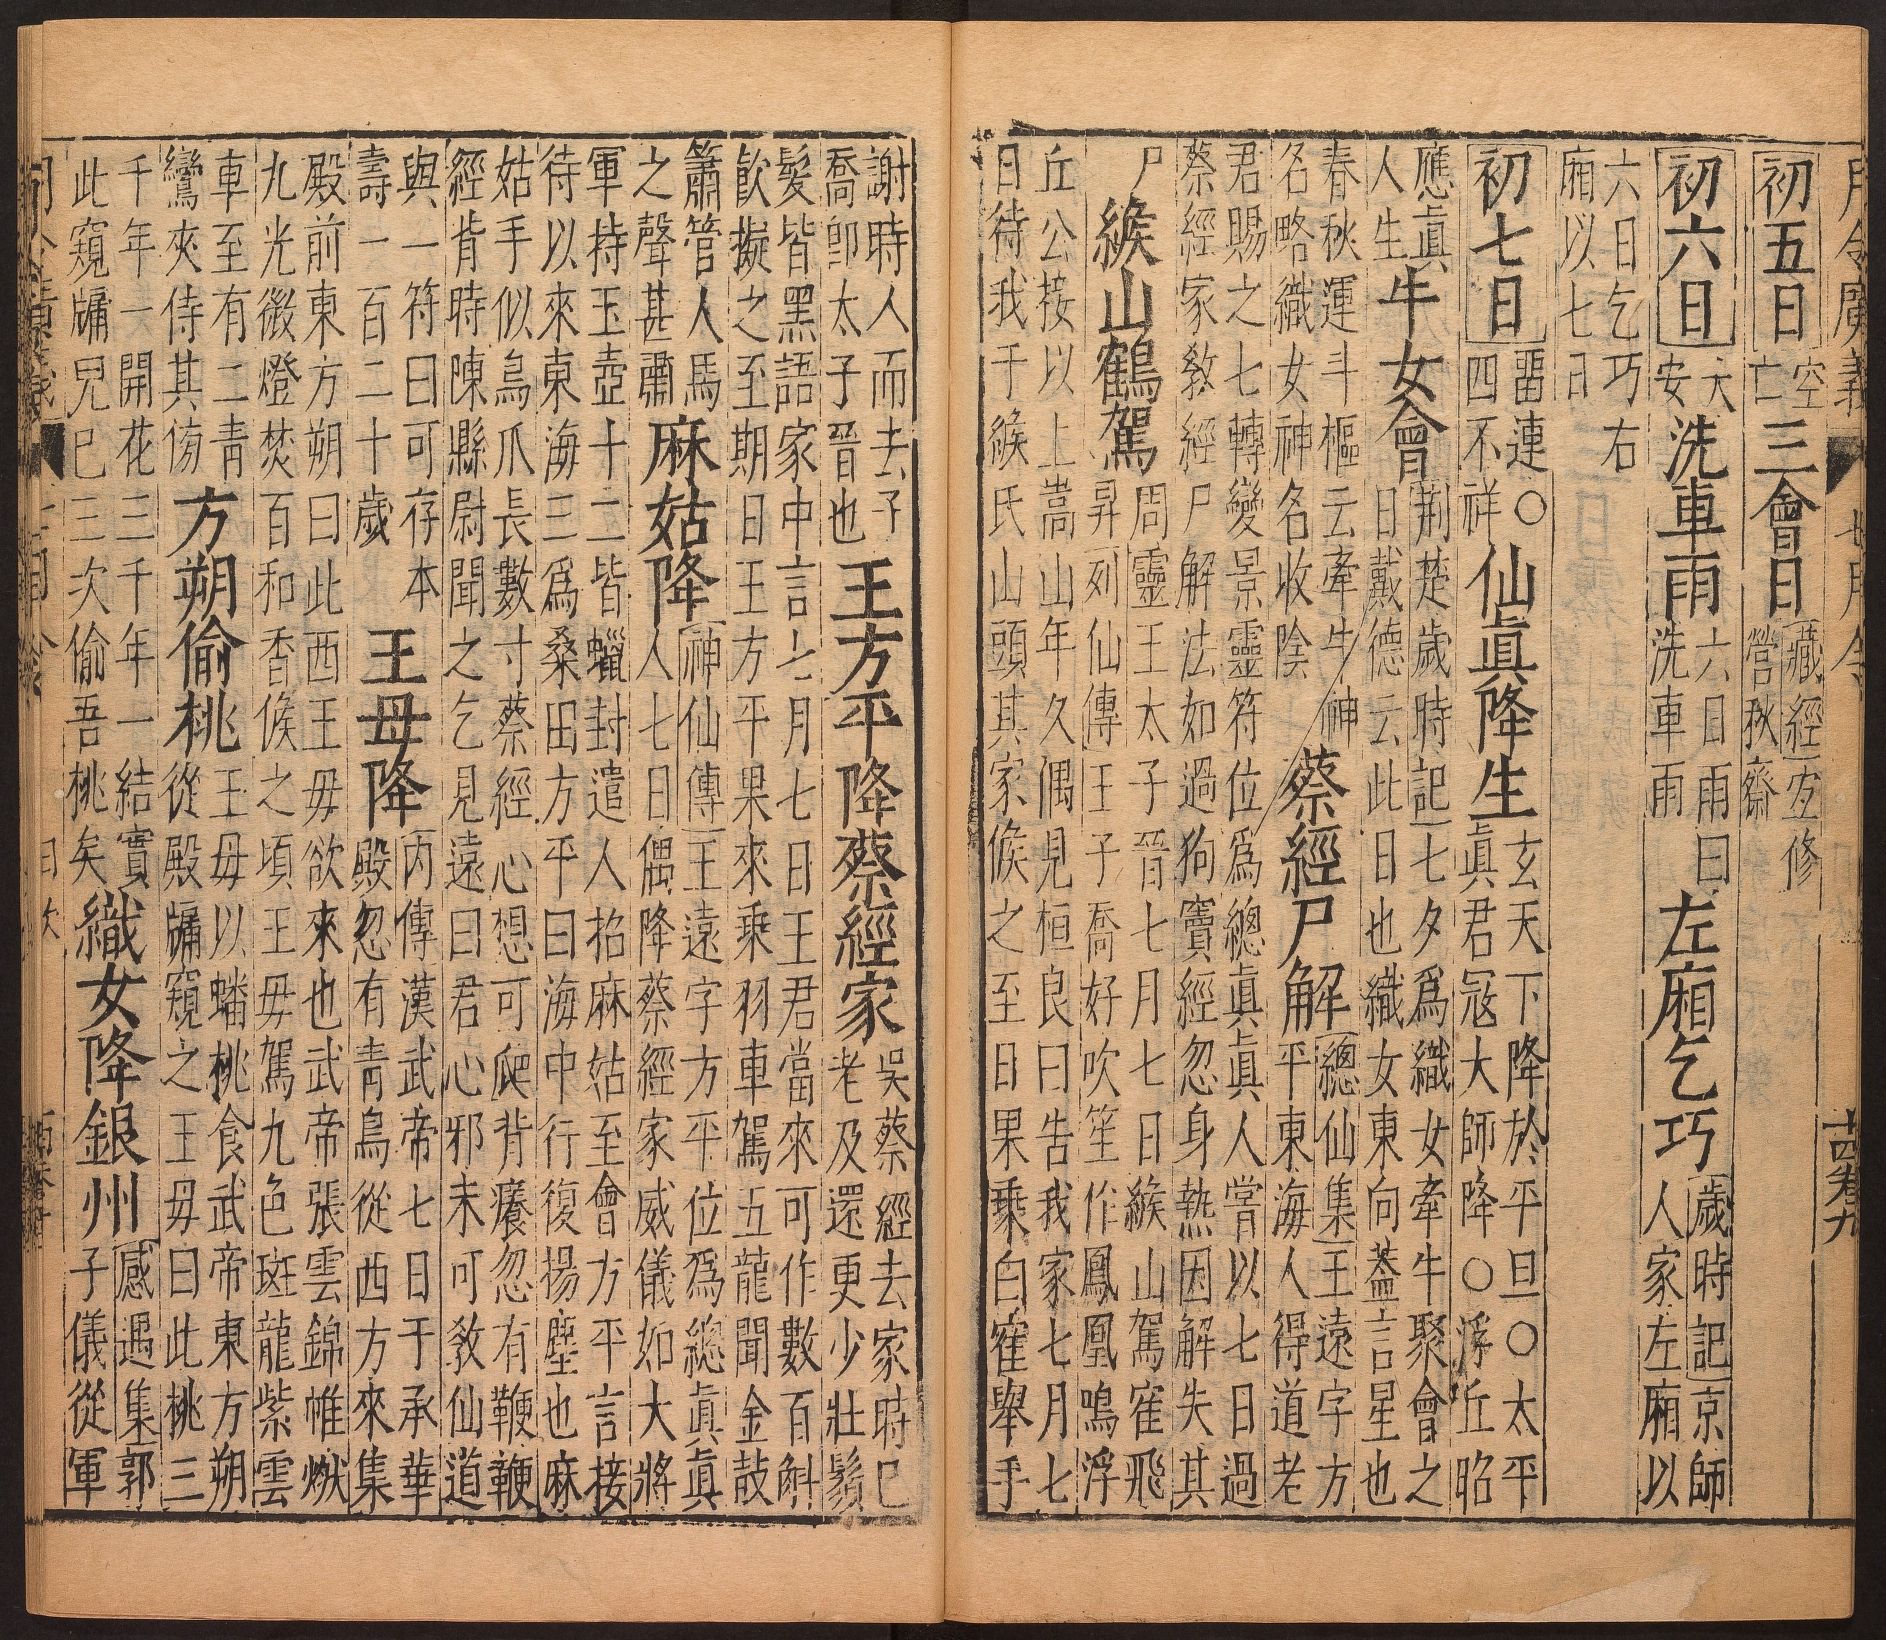 月令廣義 七月令
初五日
空
亡
三會日
藏經宜修
營秋齋
初六日
天
安
洗車雨
六日雨曰
洗車雨
左廂乞巧
歲時記京師
人家左廂以
六日乞巧右
廂以七日
初七日
畱連〇
四不祥
仙眞降生
玄天下降於平旦〇太平
眞君冦大師降〇浮丘昭
應眞
人生
牛女會
荆楚歲時記七夕爲織女牽牛聚會之
日戴德云此日也織女東向蓋言星也
春秋運斗樞云牽牛神
名略織女神名收陰
蔡經尸解
總仙集王遠字方
平東海人得道老
君賜之七轉變景靈符位爲總眞眞人嘗以七日過
蔡經家敎經尸解法如過狗竇經忽身熱因解失其
尸
緱山鶴駕
周靈王太子晉七月七日緱山駕寉飛
昇列仙傳王子喬好吹笙作鳳凰鳴浮
丘公接以上嵩山年久偶見桓良曰告我家七月七
日待我于緱氏山頭其家候之至日果乗白寉舉手
謝時人而去子
喬卽太子晉也
王方平降蔡經家
吳蔡經去家時已
老及還更少壯鬚
髮皆黑語家中言七月七日王君當來可作數百斛
飮擬之至期日王方平果來乘羽車駕五龍聞金鼓
簫管人馬
之聲甚肅
麻姑降
神仙傳王遠字方平位爲總眞眞
人七日偶降蔡經家威儀如大將
軍持玉壺十二皆蠟封遣人招麻姑至會方平言接
待以來東海三爲桑田方平曰海中行復揚塵也麻
姑手似鳥爪長數寸蔡經心想可爬背癢忽有鞭鞭
經背時陳縣尉聞之乞見遠曰君心邪未可敎仙道
與一符曰可存本
壽一百二十歲
王母降
丙傳漢武帝七日于承華
殿忽有青鳥從西方來集
殿前東方朔曰此西王毋欲來也武帝張雲錦帷燃
九光微燈焚百和香候之頃王毋駕九色斑龍紫雲
車至有二青
鸞夾侍其傍
方朔偷桃
王毋以蟠桃食武帝東方朔
從殿牖窺之王毋曰此桃三
千年一開花三千年一結實
此窺牖兒已三次偷吾桃矣
織女降銀州
感遇集郭
子儀從軍